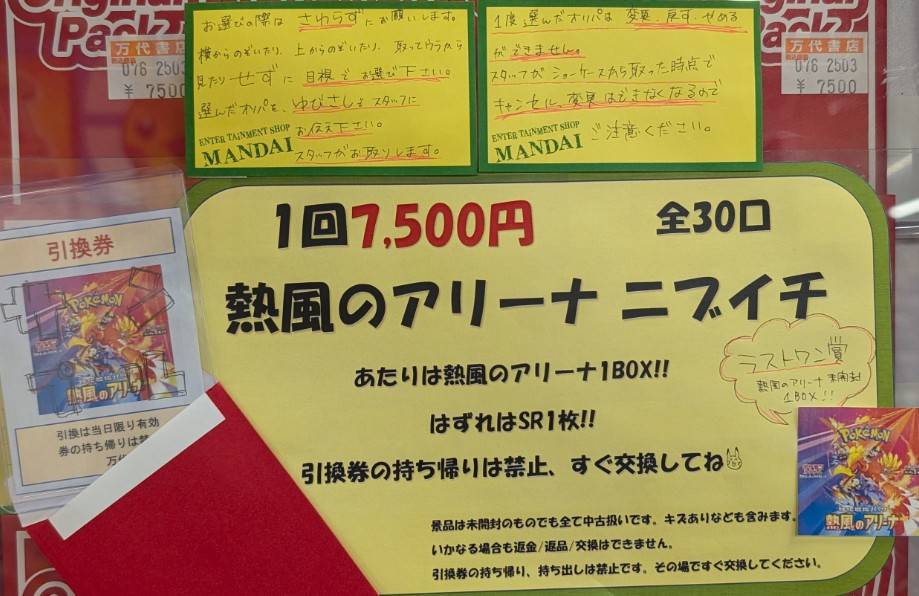 Original
Pack
万代書店
076 2503
¥ 7500
お選びの際は さわらずにお願いします。
横からのぞいたり、上からのぞいたり、取ってウラから
見たり せずに 目視で お選び下さい。
選んだオリパを、ゆびさしでスタッフに
お伝え下さい。
スタッフがお取りします。
ENTERTAINMENT SHOP
MANDAI
1度選んだオリパは 変更、戻す、やめる
ができません。
スタッフが ショーケースから取った時点で
キャンセル、変更はできなくなるので
ご注意ください。
ENTERTAINMENT SHOP
MANDAI
Original
Pack
万代書店
076 2503
¥ 7500
引換券
Pokémon
熱風のアリーナ
引換は当日限り有効
券の持ち帰りは禁
万代
1回7,500円
全30口
熱風のアリーナ ニブイチ
あたりは熱風のアリーナ1BOX!!
はずれはSR1枚!!
引換券の持ち帰りは禁止、すぐ交換してね
ラストワン賞
熱風のアリーナ 未開封
1BOX!!
Pokémon
熱風のアリーナ
景品は未開封のものでも全て中古扱いです。キズありなども含みます。
いかなる場合も返金/返品/交換はできません。
引換券の持ち帰り、持ち出しは禁止です。その場ですぐ交換してください。